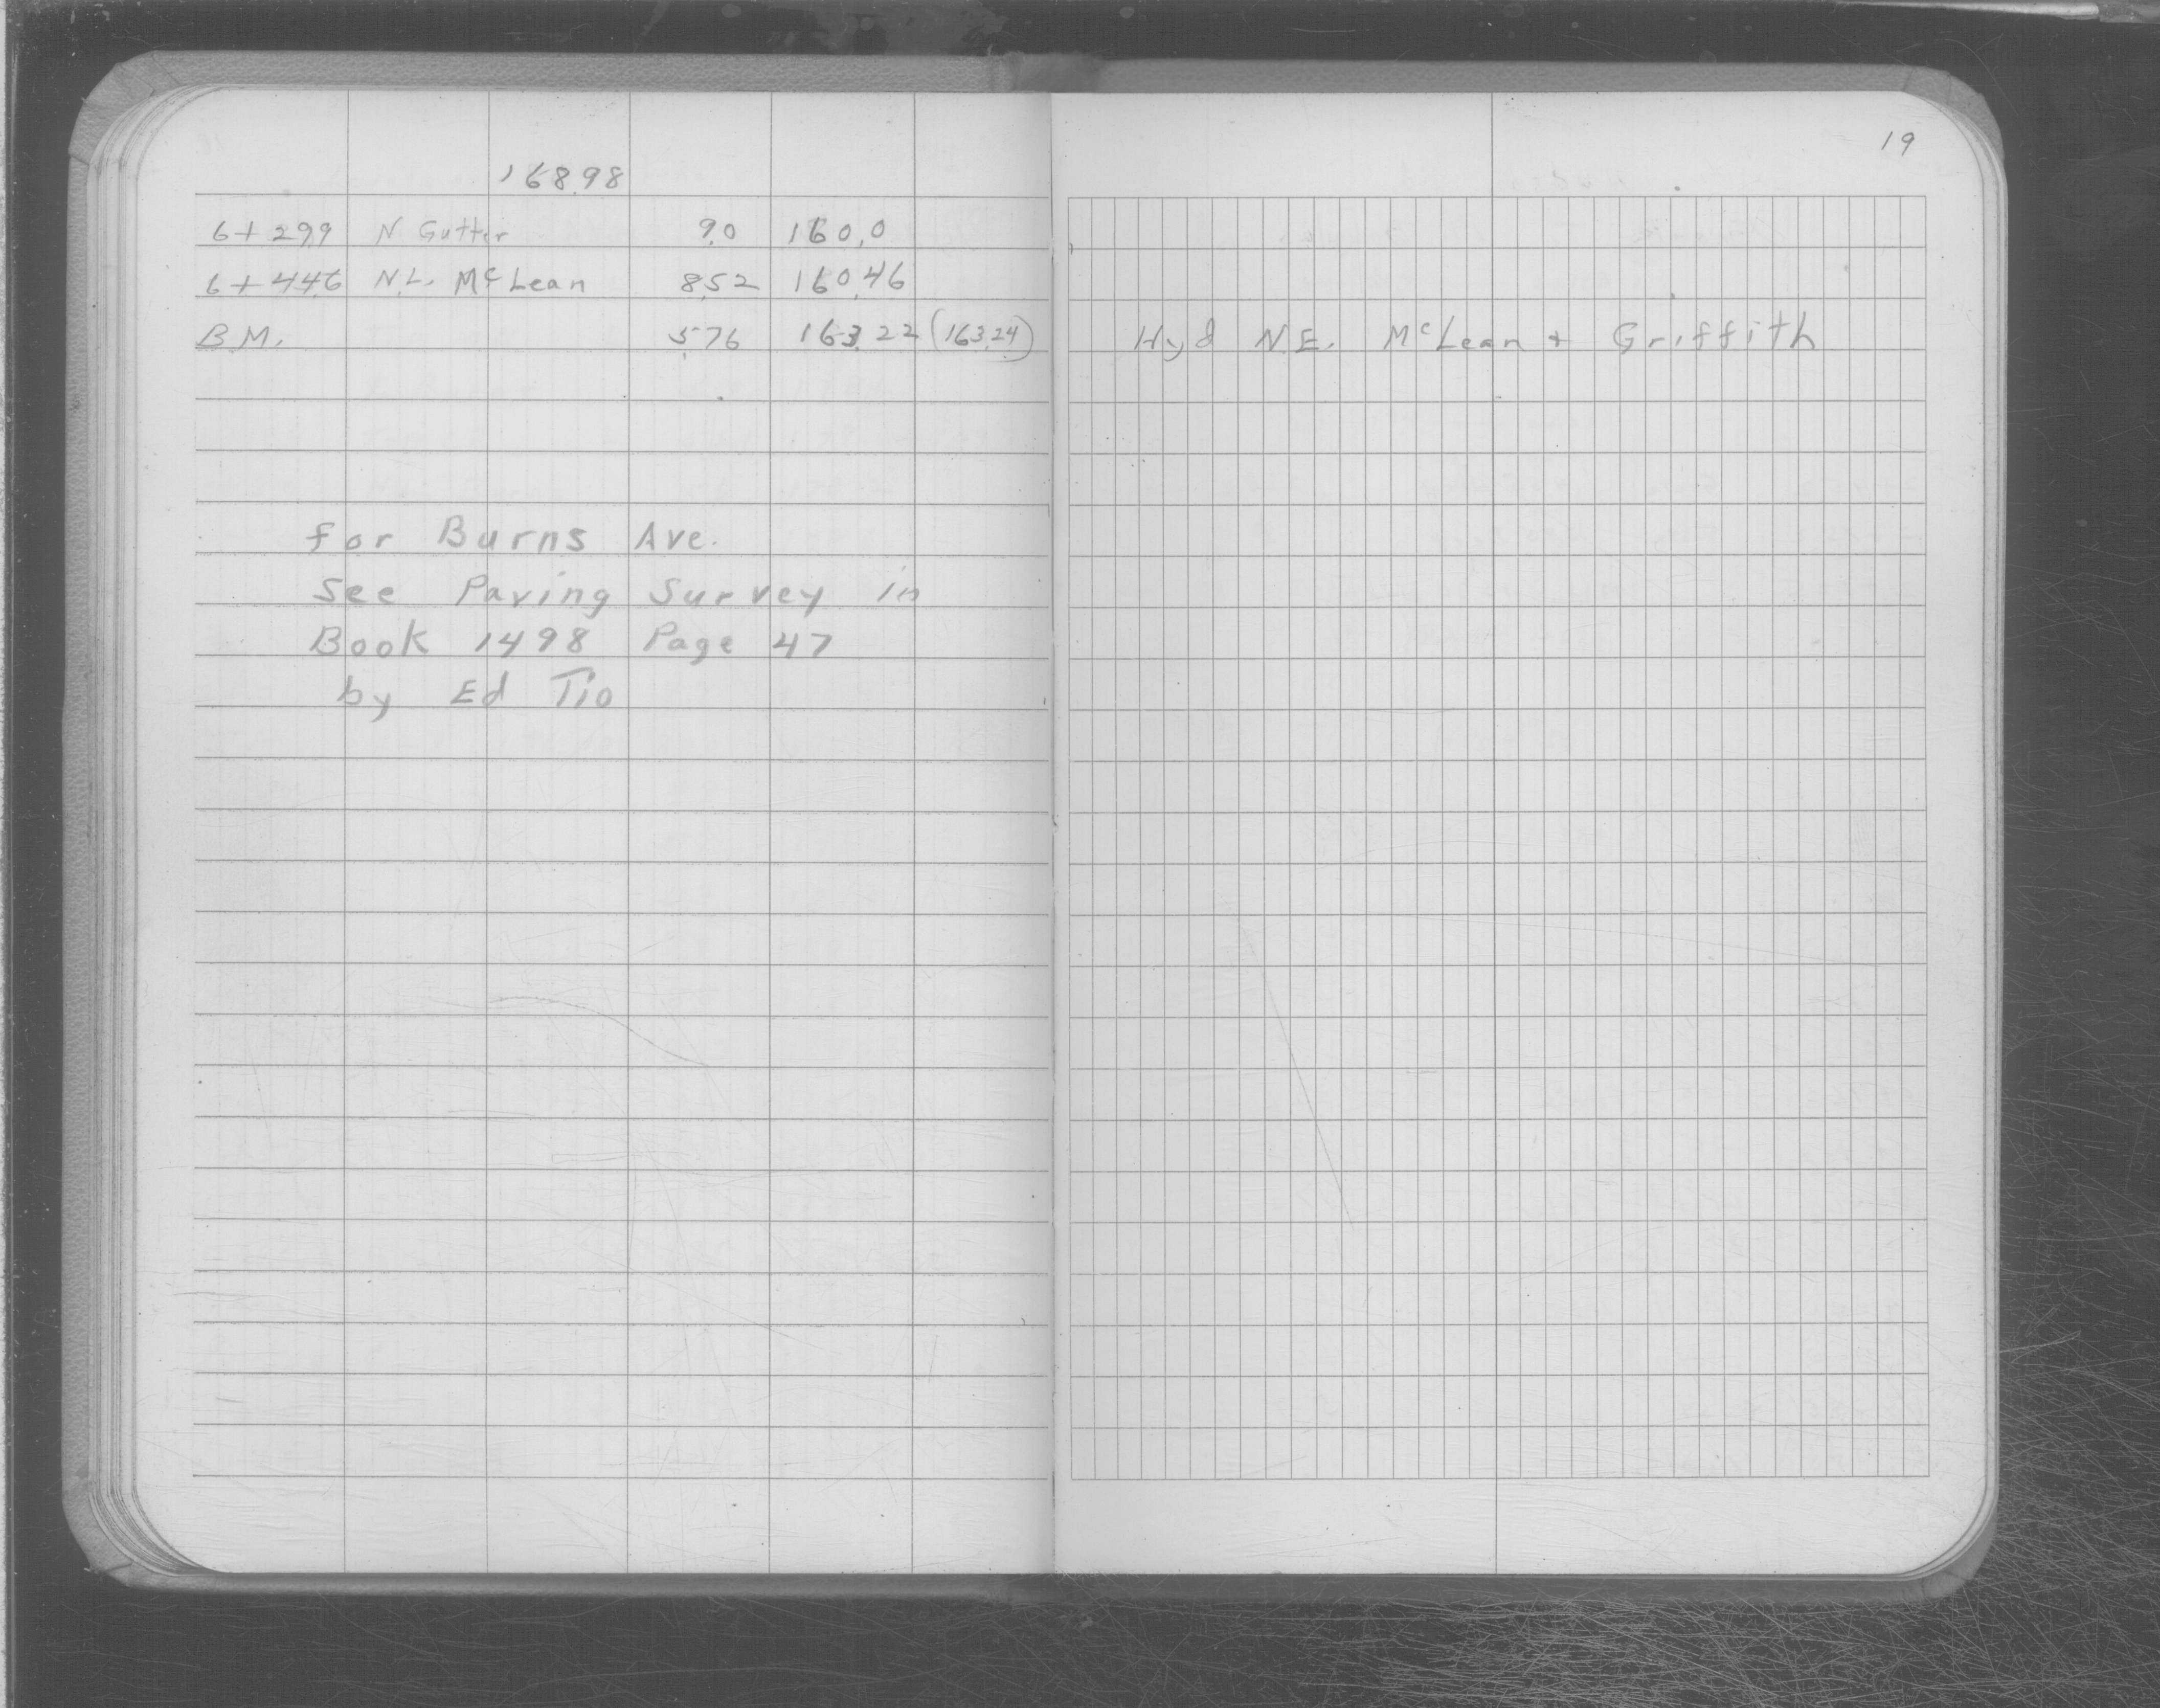 19
168.98
6+29.9 N Gutter 9.0 160.0
6+44.6 N.L. McLean 8.52 160.46
B.M. 5.76 163.22 (163.24) Hyd N.E. McLean + Griffith
for Burns Ave.
See Paving Survey in
Book 1498 Page 47
by Ed Tio